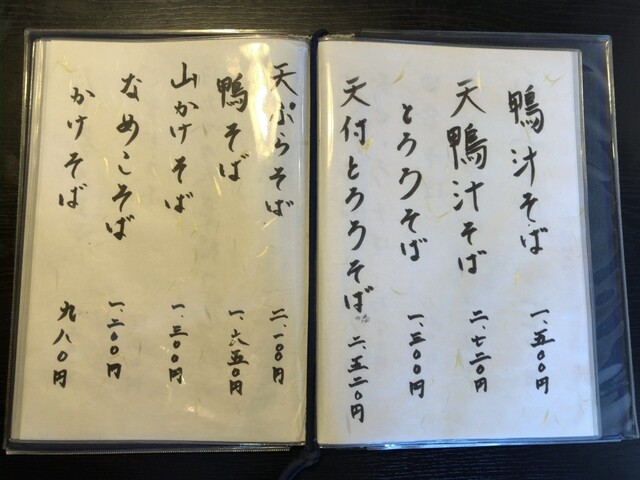 鴨汁そば 一、五〇〇円
天鴨汁そば 二、七二〇円
とろろそば 一、三〇〇円
天付とろろそば 二、五二〇円
天ぷらそば 二、一〇〇円
鴨そば 一、六五〇円
山かけそば 一、三〇〇円
なめこそば 一、二〇〇円
かけそば 九八〇円